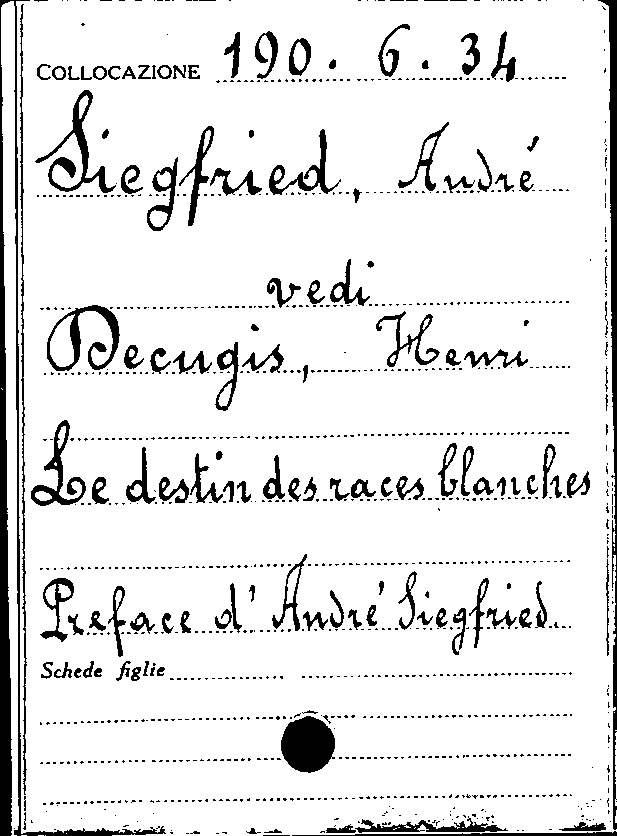 COLLOCAZIONE 190. 6. 34
Siegfried, André
vedi
Decugis, Henri
Le destin des races blanches
Preface d'André Siegfried.
Schede figlie